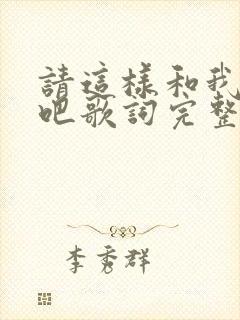 請這樣和我
吧歌詞完整
李秀群